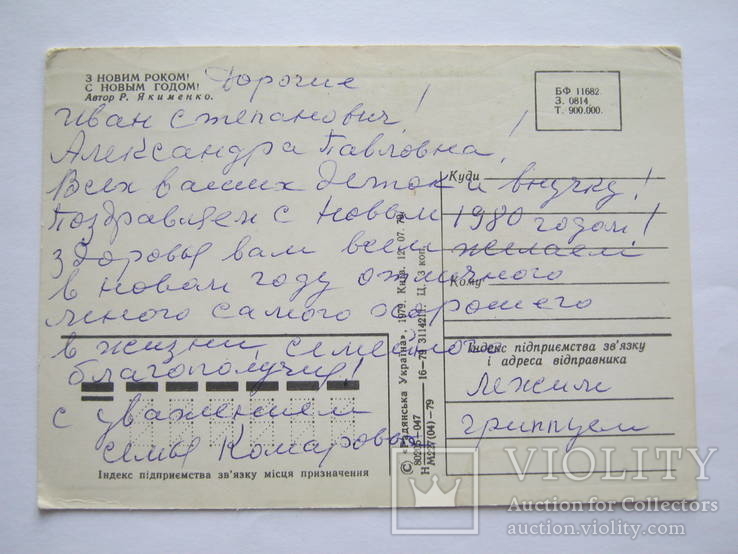 З НОВИМ РОКОМ!
С НОВЫМ ГОДОМ!
Автор Р. Якименко.
БФ 11682
З. 0814.
Т. 900.000.
Дорогие
Иван Степанович!
Александра Павловна!
Всех ваших деток и внучку!
Поздравляем с Новым 1980 годом!
Здоровья вам всем желаем
в новом году отличного
много самого хорошего
в жизни, семейного
благополучия!
с уважением
семья Комаровых
Куди
Кому
Індекс підприємства зв'язку
і адреса відправника
Лежим
гриппуем
Індекс підприємства зв'язку місця призначення
© «Радянська Україна», 1979. Київ. 12. 07. 79.
Н —16-79 3114211. Ц. 3 коп.
VIOLITY
Auction for Collectors
auction.violity.com